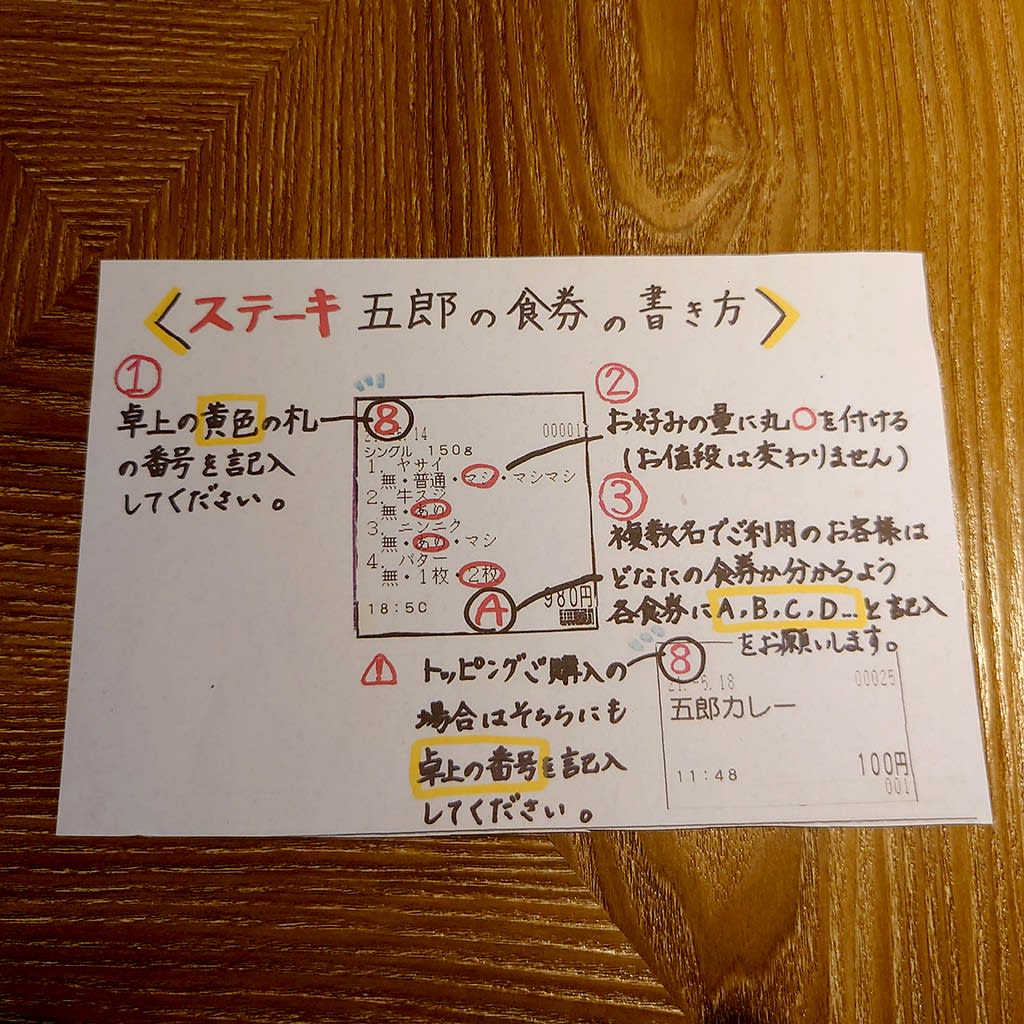 〈ステーキ五郎の食券の書き方〉
①
卓上の黄色の札
の番号を記入
してください。
8
14
00001
シングル 150g
1. ヤサイ
無・普通・マシ・マシマシ
2. 牛スジ
無・あり
3. ニンニク
無・あり・マシ
4. バター
無・1枚・2枚
980円
18:50
A
②
お好みの量に丸○を付ける
(お値段は変わりません)
③
複数名でご利用のお客様は
どなたの食券か分かるよう
各食券にA,B,C,D...と記入
をお願いします。
⚠ トッピングご購入の
場合はそちらにも
卓上の番号を記入
してください。
8
5.18
00025
五郎カレー
11:48
100円
001